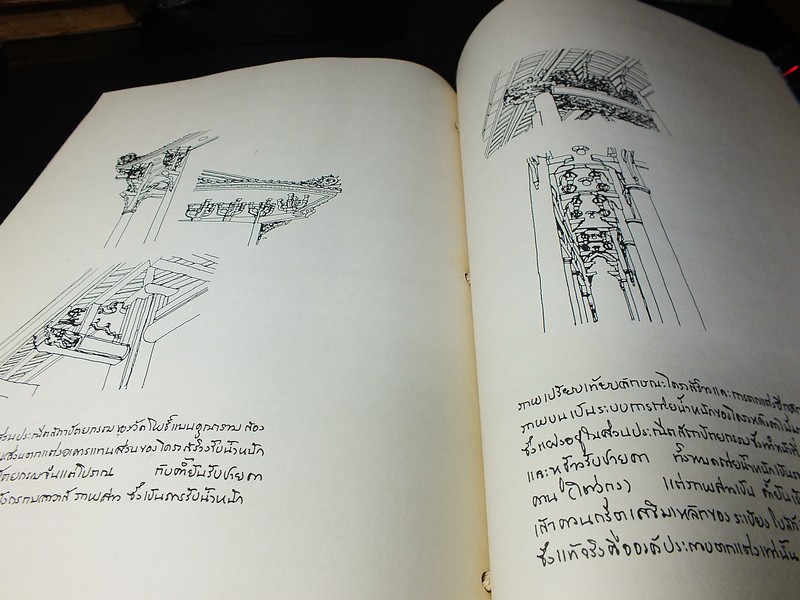 ส่วนประณีตสถาปัตยกรรม ของวัดโพธิ์แมนคุณาราม สอง
นส่วนตกแต่งอาคารแทนส่วนของโครงสร้างรับน้ำหนัก
ปัตยกรรมจีนแต่โบราณ กับค้ำยันรับชายคา
ภาพล่าง ซึ่งเป็นการรับน้ำหนัก
ภาพเปรียบเทียบลักษณะโครงสร้างและการตกแต่ง
ภาพบนเป็นระบบการถ่ายน้ำหนักของโครงหลังคา
ซึ่งแฝงอยู่ในส่วนประณีตสถาปัตยกรรมซึ่งทำหน้าที่
และหัวเสารับชายคา ทั้งหมดถ่ายน้ำหนักเป็น
คาน (โต่วกง) แต่ภาพล่างเป็น ค้ำยัน
เสา คานคอนกรีตเสริมเหล็กของ ระเบียง
ซึ่งแท้จริงคือองค์ประกอบตกแต่งเท่านั้น